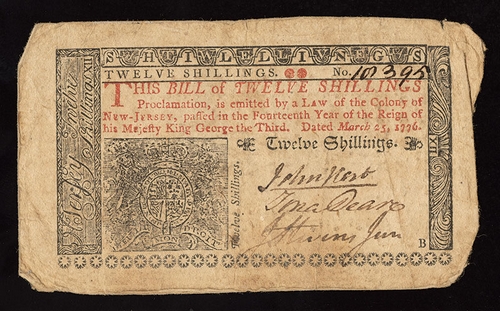 SHTIWLELIVNEGS
TWELVE SHILLINGS. No. 101395
THIS BILL of TWELVE SHILLINGS
Proclamation, is emitted by a LAW of the Colony of
NEW-JERSEY, passed in the Fourteenth Year of the Reign of
his Majesty King George the Third. Dated March 25, 1776.
Twelve Shillings.
Jersey Twelve Shillings
XII
Twelve Shillings.
XII
DROIT
John Hart
B